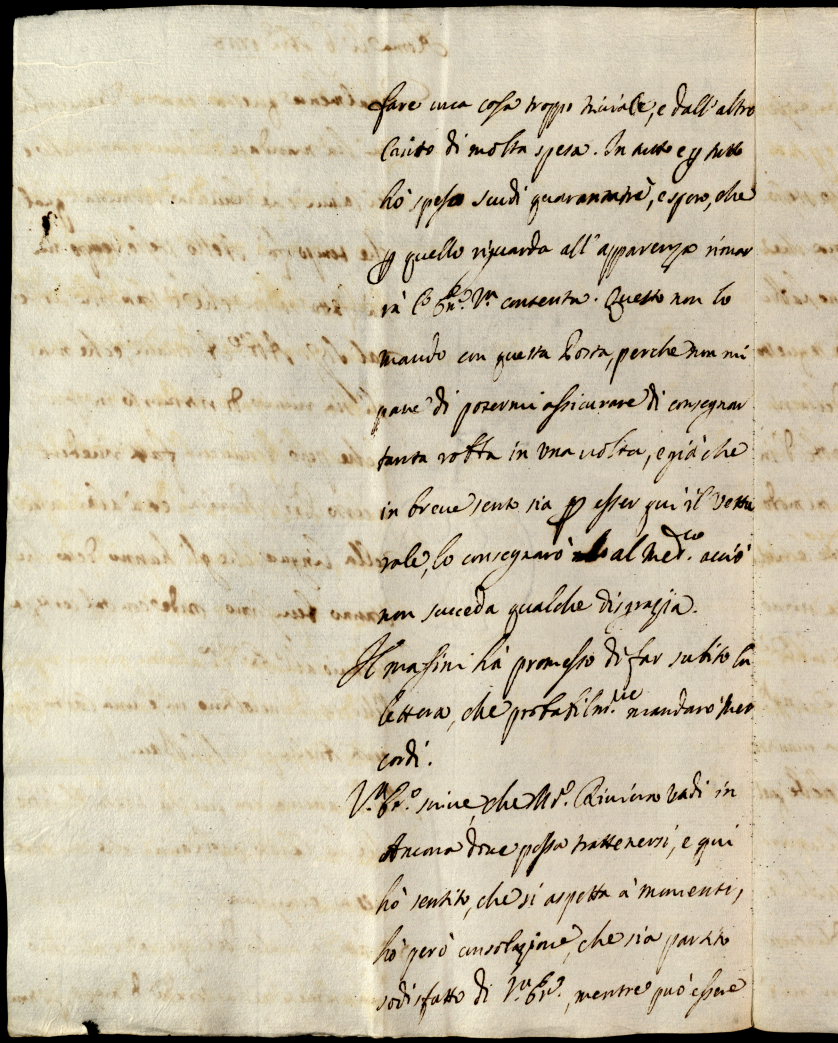 fare una cosa troppo triviale, e dall'altro
canto di molta spesa. In tutto e p tutto
hò speso scudi quarantatrè, e spero, che
p quello riguarda all'apparenza rimar
rà Vra contenta. Questo non lo
mando con questa Posta, perche non mi
pare di potermi assicurare di consegnar
tanta robba in una uolta, e già che
in breue sento sia p esser qui il Vettu
rale, lo consegnarò al Med.co acciò
non succeda qualche disgrazia.
Il Massini hà promesso di far subito la
lettera, che probabilm.te mandarò Mer
cordì.
V.ra scriue, che Mr. Riuiera vadi in
Ancona doue possa trattenersi, e qui
hò sentito, che si aspetta à momenti,
hò però consolazione, che sia partito
sodisfatto di V.ra, mentre può essere